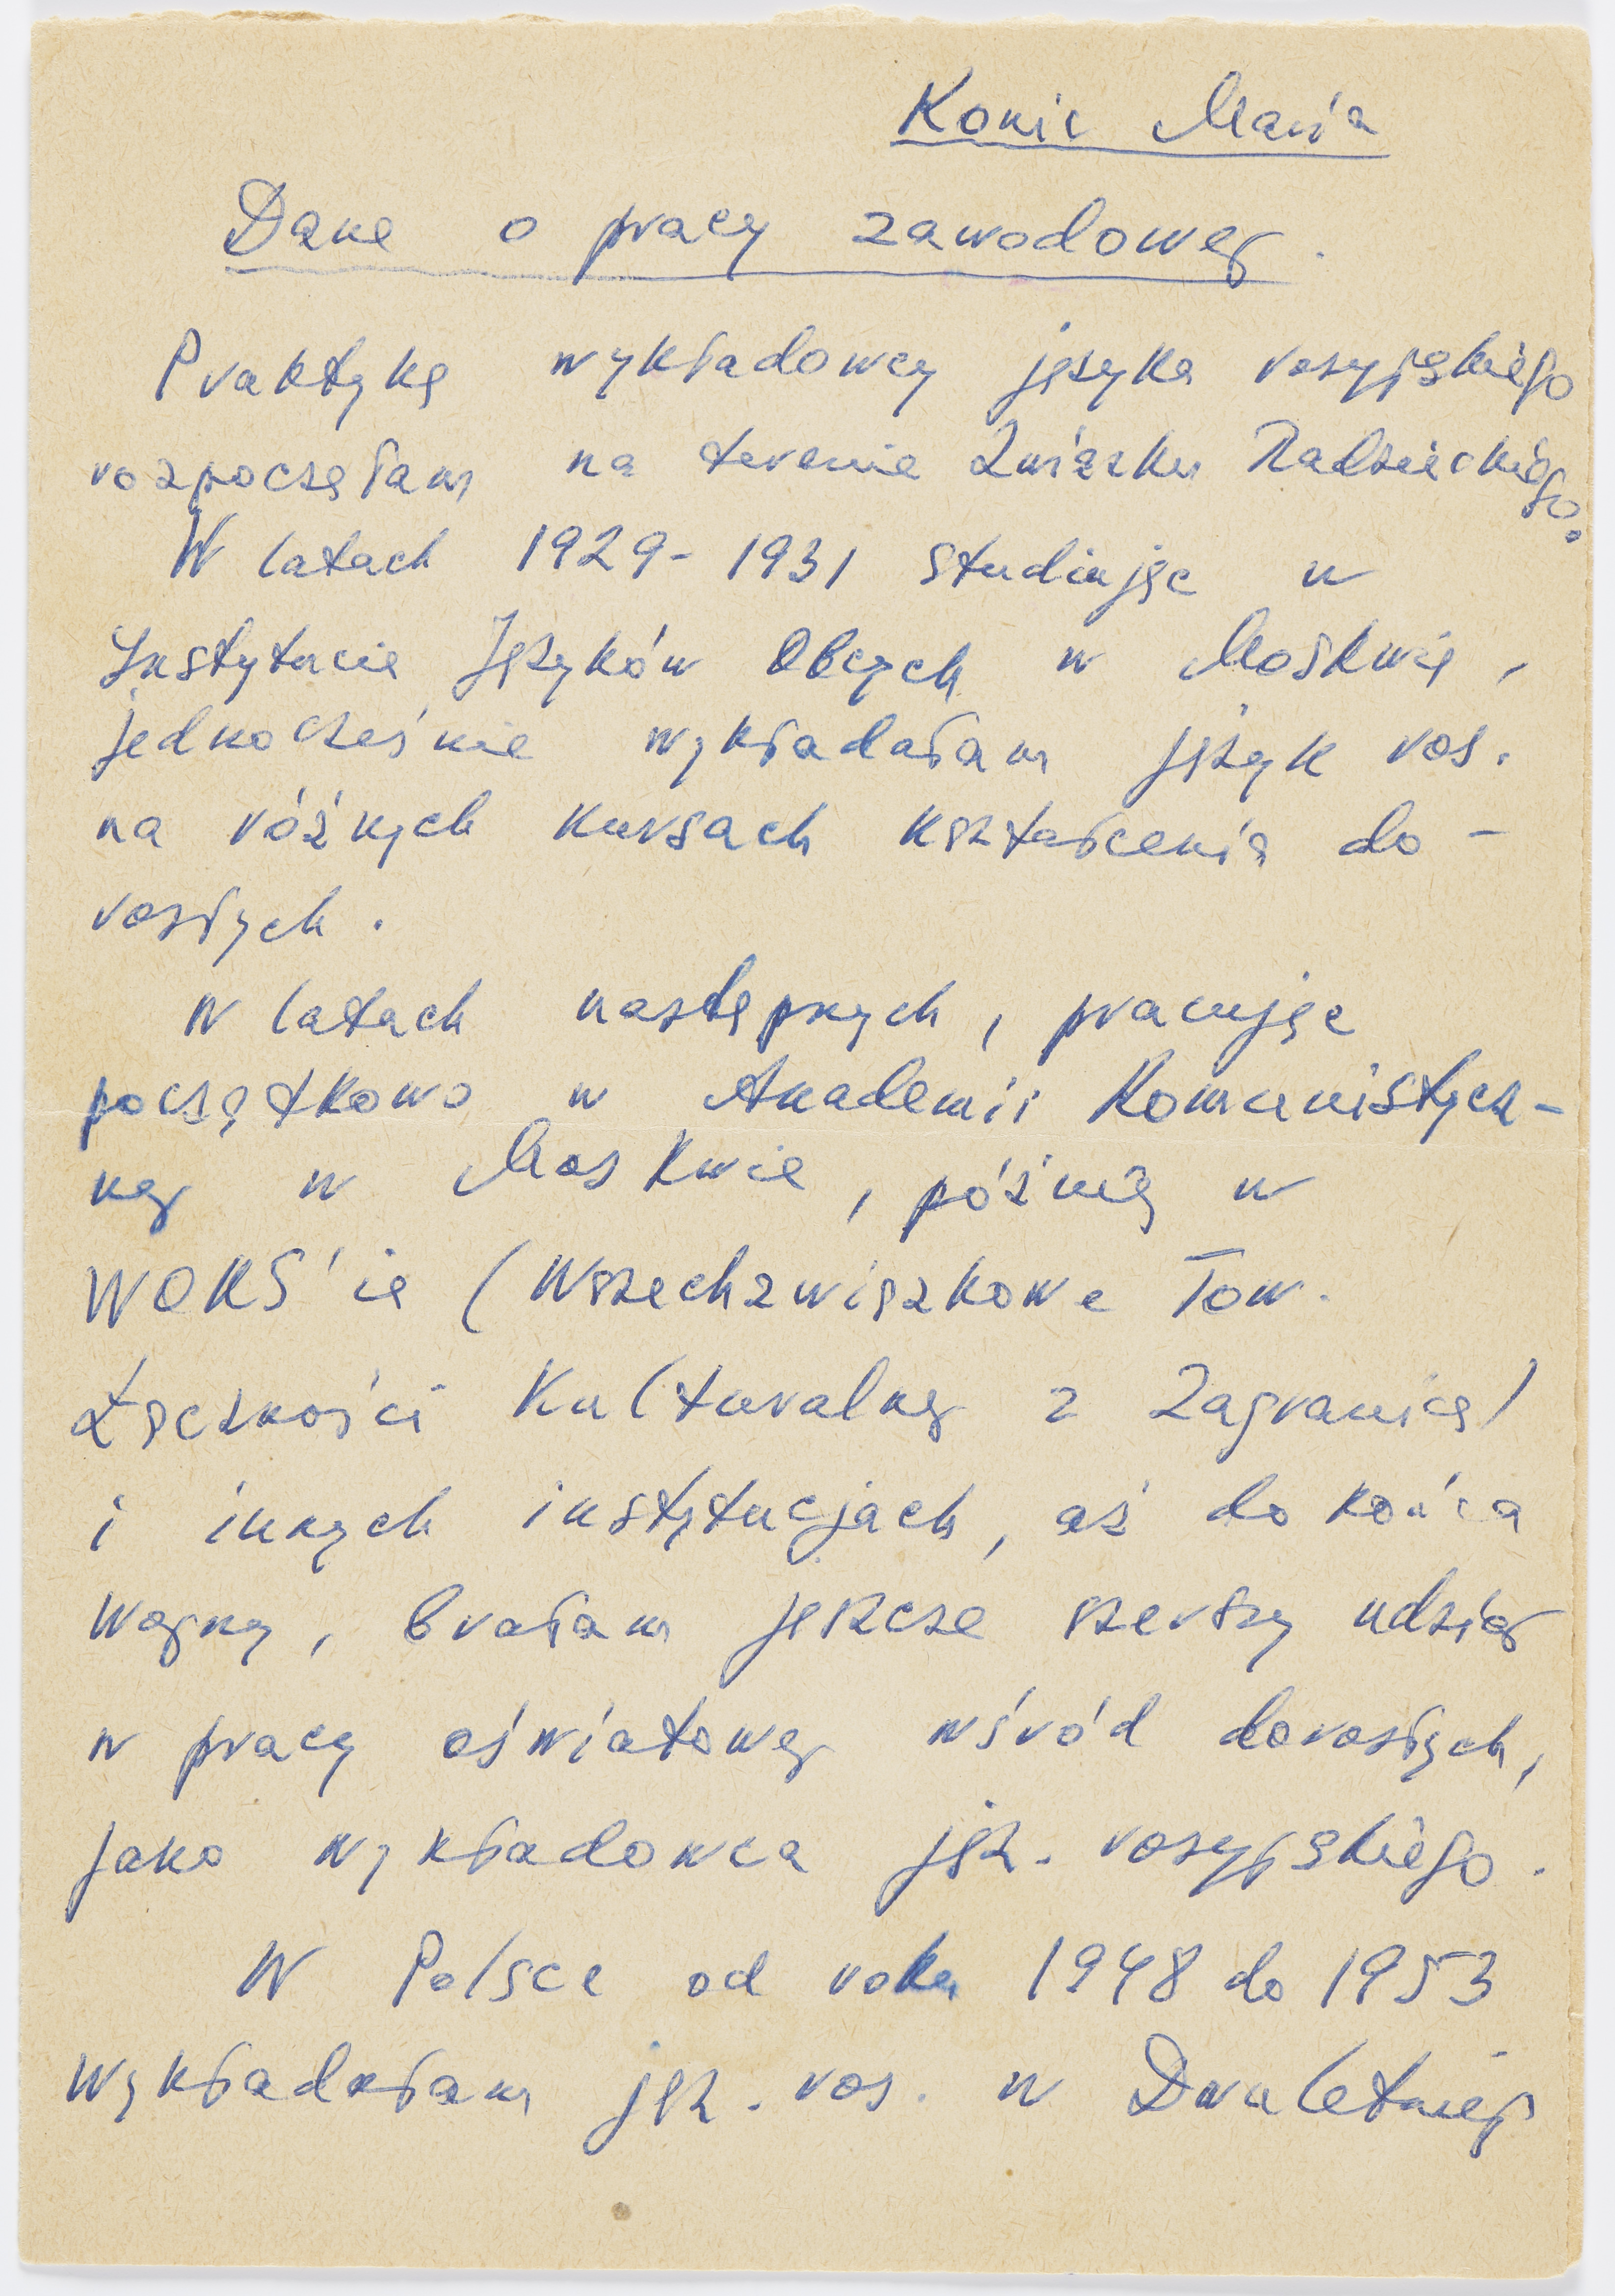 Konic Maria
Dane o pracy zawodowej.
Praktykę wykładowcy języka rosyjskiego
rozpoczęłam na terenie Związku Radzieckiego.
W latach 1929-1931 studiując w
Instytucie Języków Obcych w Moskwie,
jednocześnie wykładałam język ros.
na różnych kursach kształcenia do-
rosłych.
W latach następnych, pracując
początkowo w Akademii Komunistycz-
nej w Moskwie, później w
WOKS'ie (Wszechzwiązkowe Tow.
Łączności Kulturalnej z Zagranicą)
i innych instytucjach, aż do końca
wojny, brałam jeszcze szerszy udział
w pracy oświatowej wśród dorosłych,
jako wykładowca jęz. rosyjskiego.
W Polsce od roku 1948 do 1953
wykładałam jęz. ros. w Dwuletniej